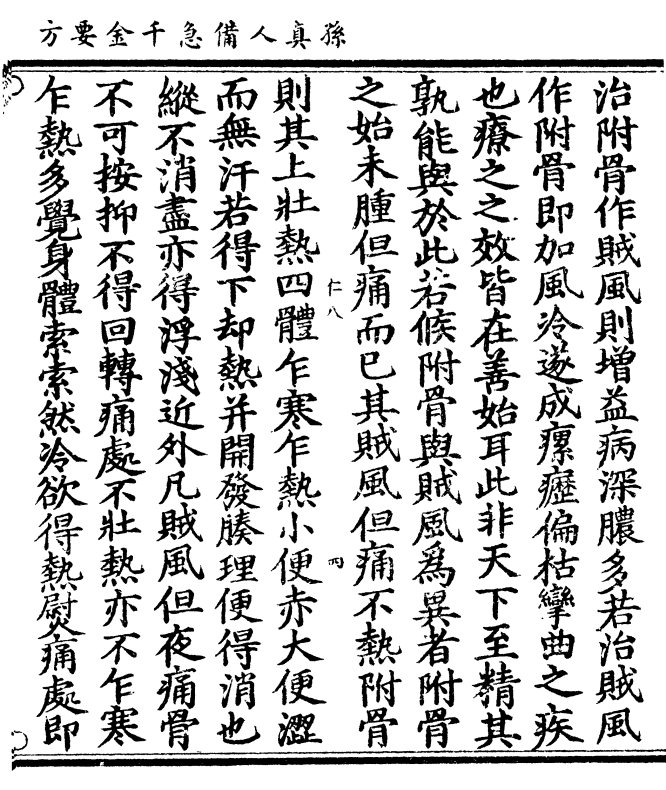 孫真人備急千金要方
治附骨作賊風則增益病深膿多若治賊風
作附骨即加風冷遂成瘰癧偏枯攣曲之疾
也療之之效皆在善始耳此非天下至精其
孰能與於此若候附骨與賊風爲異者附骨
之始未腫但痛而已其賊風但痛不熱附骨
仁八
四
則其上壯熱四體乍寒乍熱小便赤大便澀
而無汗若得下却熱并開發腠理便得消也
縱不消盡亦得浮淺近外凡賊風但夜痛骨
不可按抑不得回轉痛處不壯熱亦不乍寒
乍熱多覺身體索索然冷欲得熱熨痛處即